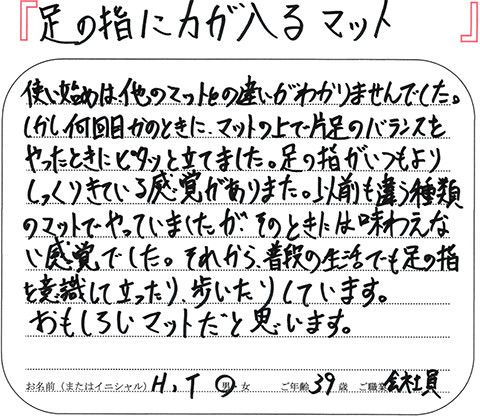 『足の指に力が入るマット』
使い始めは、他のマットとの違いがわかりませんでした。
しかし何回目かのときに、マットの上で片足のバランスを
やったときにピタッと立てました。足の指がいつもより
しっくりきている感覚がありました。以前も違う種類
のマットでやっていましたが、そのときには味わえな
い感覚でした。それから、普段の生活でも足の指
を意識して立ったり、歩いたりしています。
おもしろいマットだと思います。
お名前（またはイニシャル） H.T 男・女 ご年齢 39 歳 ご職業 会社員